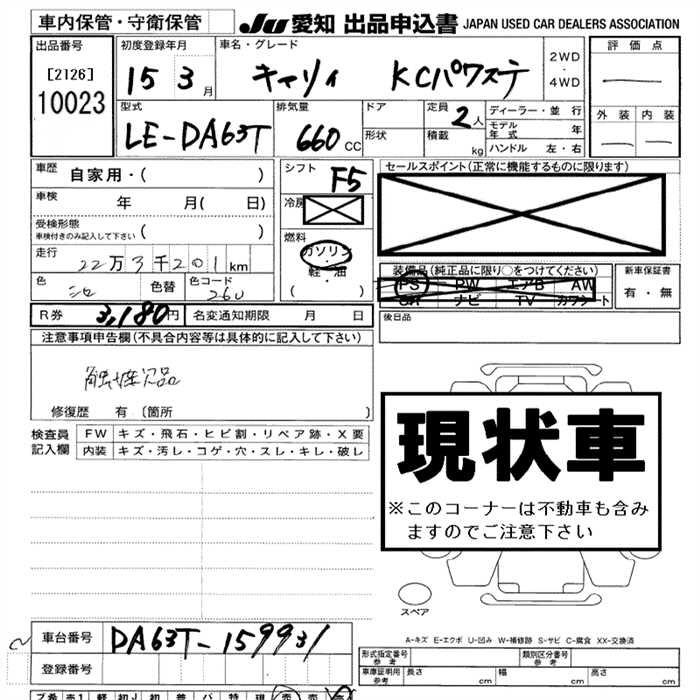 車内保管・守衛保管 JU 愛知 出品申込書 JAPAN USED CAR DEALERS ASSOCIATION
出品番号 初度登録年月 車名・グレード 2WD・4WD 評価点
[2126] 15 3月 キャリィ KCパワステ
10023
型式 排気量 ドア 定員 2人 ディーラー・並行 外装 内装
LE-DA63T 660cc 形状 積載 kg モデル年式 年
ハンドル 左・右
車歴 自家用・( ) シフト F5 セールスポイント(正常に機能するものに限ります)
車検 年 月( 日) 冷房
受検形態 ( )
車検付きのみ記入して下さい
燃料 ガソリン・軽・油 ( )
走行 22万3千201km 装備品(純正品に限り○をつけてください) 新車保証書
色 シロ 色替 色コード 26U PS PW エアB AW 有・無
SR ナビ TV カワシート
R券 3,180円 名変通知期限 月 日 後日品
注意事項申告欄(不具合内容等は具体的に記入して下さい)
触媒欠品
修復歴 有〔箇所 〕
検査員記入欄 FW キズ・飛石・ヒビ割・リペア跡・X要
内装 キズ・汚レ・コゲ・穴・スレ・キレ・破レ
現状車
※このコーナーは不動車も含み
ますのでご注意下さい
スペア
車台番号 DA63T-159931
登録番号
A-キズ E-エクボ U-凹み W-補修跡 S-サビ C-腐食 XX-交換済
形式指定番号 参考 類別区分番号 参考
車庫証明用 参考 長さ cm 幅 cm 高さ cm